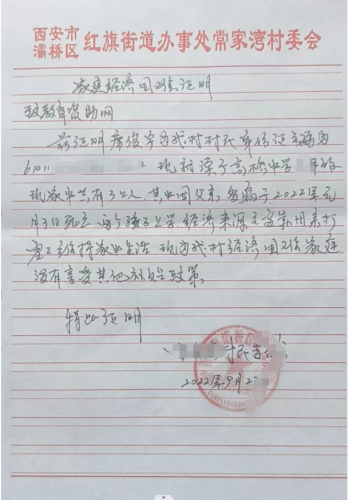 西安市
灞桥区 红旗街道办事处常家湾村委会
家庭经济困难证明
致教育资助网
兹证明 席俊 为我村村民 身份证号码为
61011 现就读于高桥中学 年级
现家中共有 3 口人 其中因父亲 多病于2022年元
月 日死亡 两个孩子上学经济来源主要靠母亲打
零工维持家中生活 现为我村经济困难家庭
没有享受其他补助政策
特此证明
村民委
2022.9.2